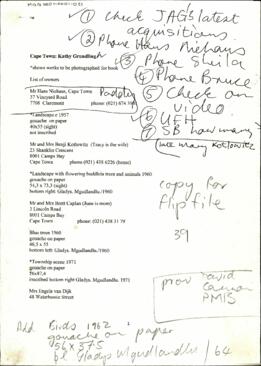 ① check JAG's latest
acquisitions.
② Phone Hans Niehaus
③ Phone Sheila
④ Phone Bruce
⑤ Check on
video.
⑥ UFH
⑦ SB how many?
Cape Town: Kathy Grundlingh
*shows works to be photographed for book
List of owners
Mr Hans Niehaus, Cape Town
37 Vineyard Road
7708 Claremont phone: (021) 674
*Landscape c 1957
gouache on paper
40x55 (sight)
not inscribed
Mr and Mrs Benji Kotlowitz (Tracy is the wife)
23 Shanklin Crescent
8001 Camps Bay
Cape Town phone (021) 438 6226 (home)
*Landscape with flowering buddleia trees and animals 1960
gouache on paper
51,3 x 73,3 (sight)
bottom right: Gladys. Mgudlandlu./1960
Mr and Mrs Brett Caplan (June is mom)
2 Lincoln Road
8001 Camps Bay
Cape Town phone: (021) 438 31 79
Blue trees 1960
gouache on paper
46,5 x 55
bottom left: Gladys. Mgudlandlu./1960
*Township scene 1971
gouache on paper
inscribed bottom right Gladys. Mgudlandlu. 1971
Mrs Angela van Dijk
48 Waterbessie Street
copy for
flip file
39
prov David
PMIS
Add Birds 1962
gouache on paper
56 x 37.5
bl Gladys Mgudlandlu / 64